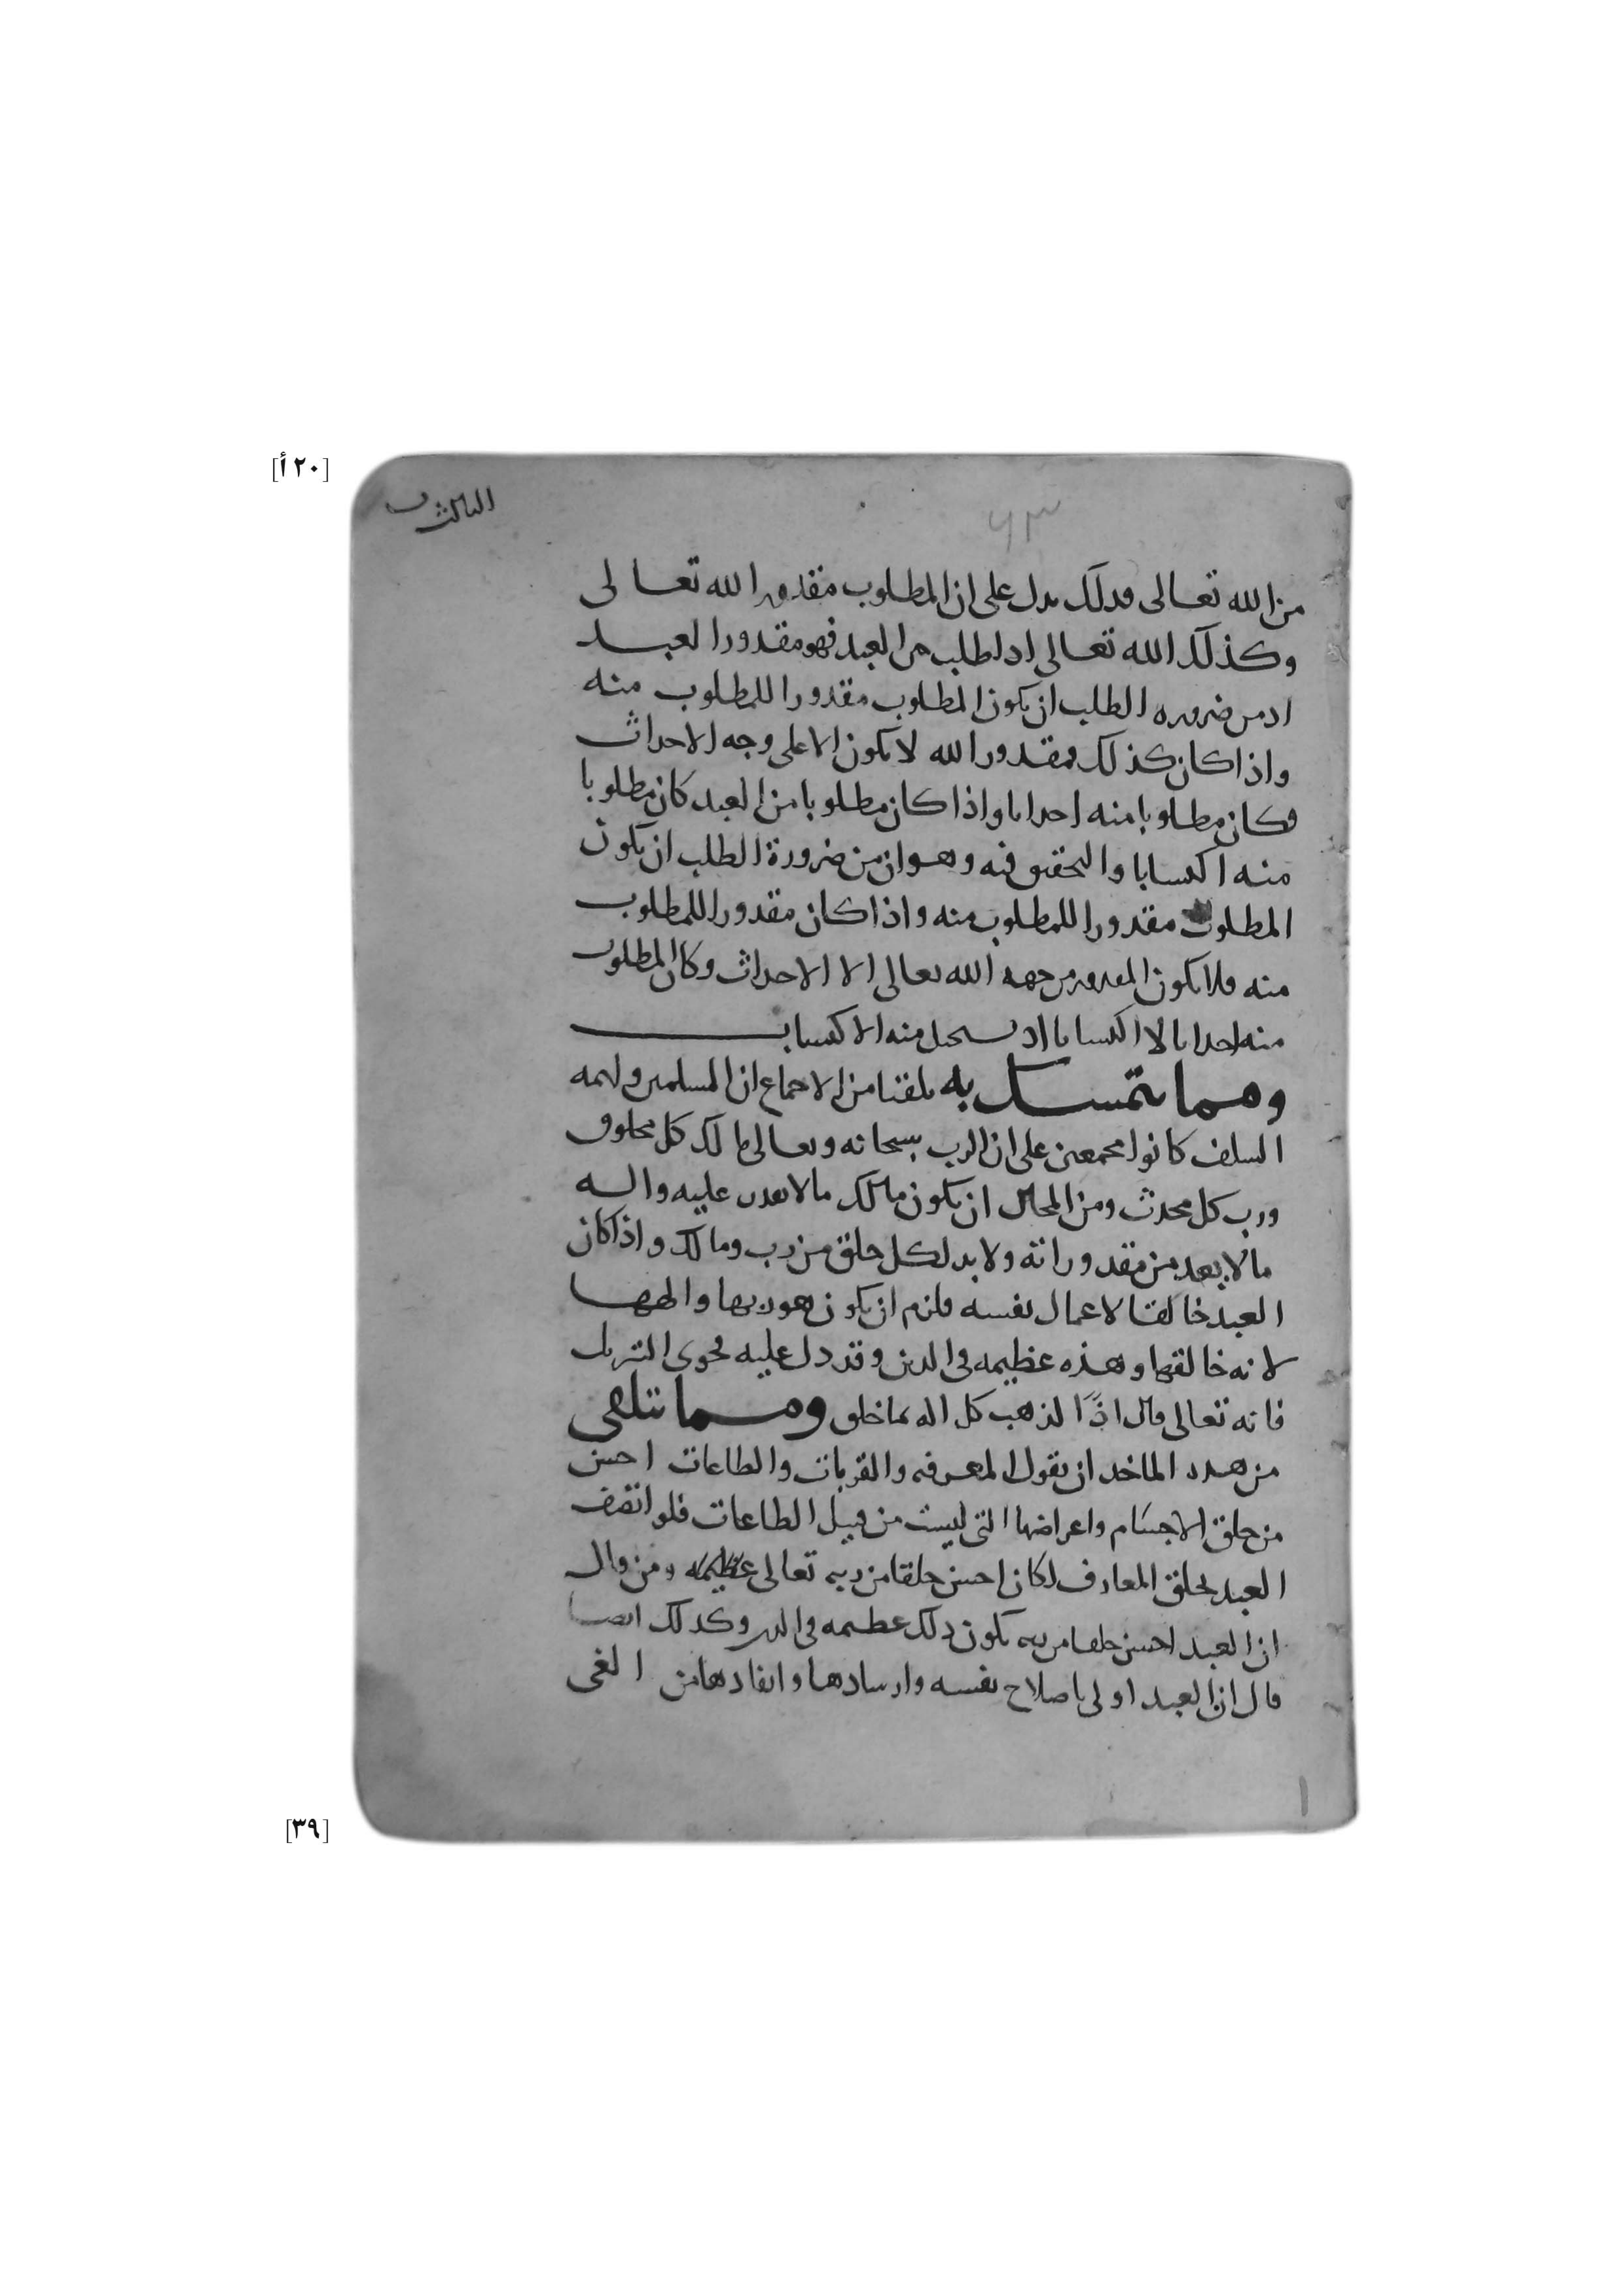 [٢٠ أ]
الثالث
٦٣
من الله تعالى فدلك يدل على ان المطلوب مقدور الله تعالى
وكذلك الله تعالى اذا طلب من العبد فهو مقدور العبد
اذ من ضروره الطلب ان يكون المطلوب مقدورا للمطلوب منه
واذا كان كذلك فمقدور الله لا يكون الا على وجه الاحداث
فكان مطلوبا منه احداثا واذا كان مطلوبا من العبد كان مطلوبا
منه اكتسابا والتحقيق فيه وهو ان من ضرورة الطلب ان يكون
المطلوب مقدورا للمطلوب منه واذا كان مقدورا للمطلوب
منه فلا يكون المقدور من جهه الله تعالى الا الاحداث وكان المطلوب
منه احداثا لا اكتسابا اذ يستحيل منه الاكتساب
ومما يتمسك به تلقنا من الاجماع ان المسلمين وائمه
السلف كانوا مجمعين على ان الرب سبحانه وتعالى مالك كل مخلوق
ورب كل محدث ومن المحال ان يكون مالك ما لا يقدر عليه واله
ما لا يعد من مقدوراته ولا بد لكل خلق من رب ومالك واذا كان
العبد خالقا لاعمال نفسه فلزم ان يكون هو ربها والهها
لانه خالقها وهذه عظيمه في الدين وقد دل عليه فحوى التنزيل
فانه تعالى قال اذًا لذهب كل اله بما خلق ومما نتلقى
من هذه الماخذ ان نقول المعرفه والقربات والطاعات احسن
من خلق الاجسام واعراضها التي ليست من قبيل الطاعات فلو اتصف
العبد بخلق المعارف لكان احسن خلقا من ربه تعالى عظيمه ومن قال
ان العبد احسن خلقا من ربه يكون ذلك عظيمه في الدين وكذلك ايضا
قال ان العبد اولى باصلاح نفسه وارشادها وانقاذها من الغي
[٣٩]